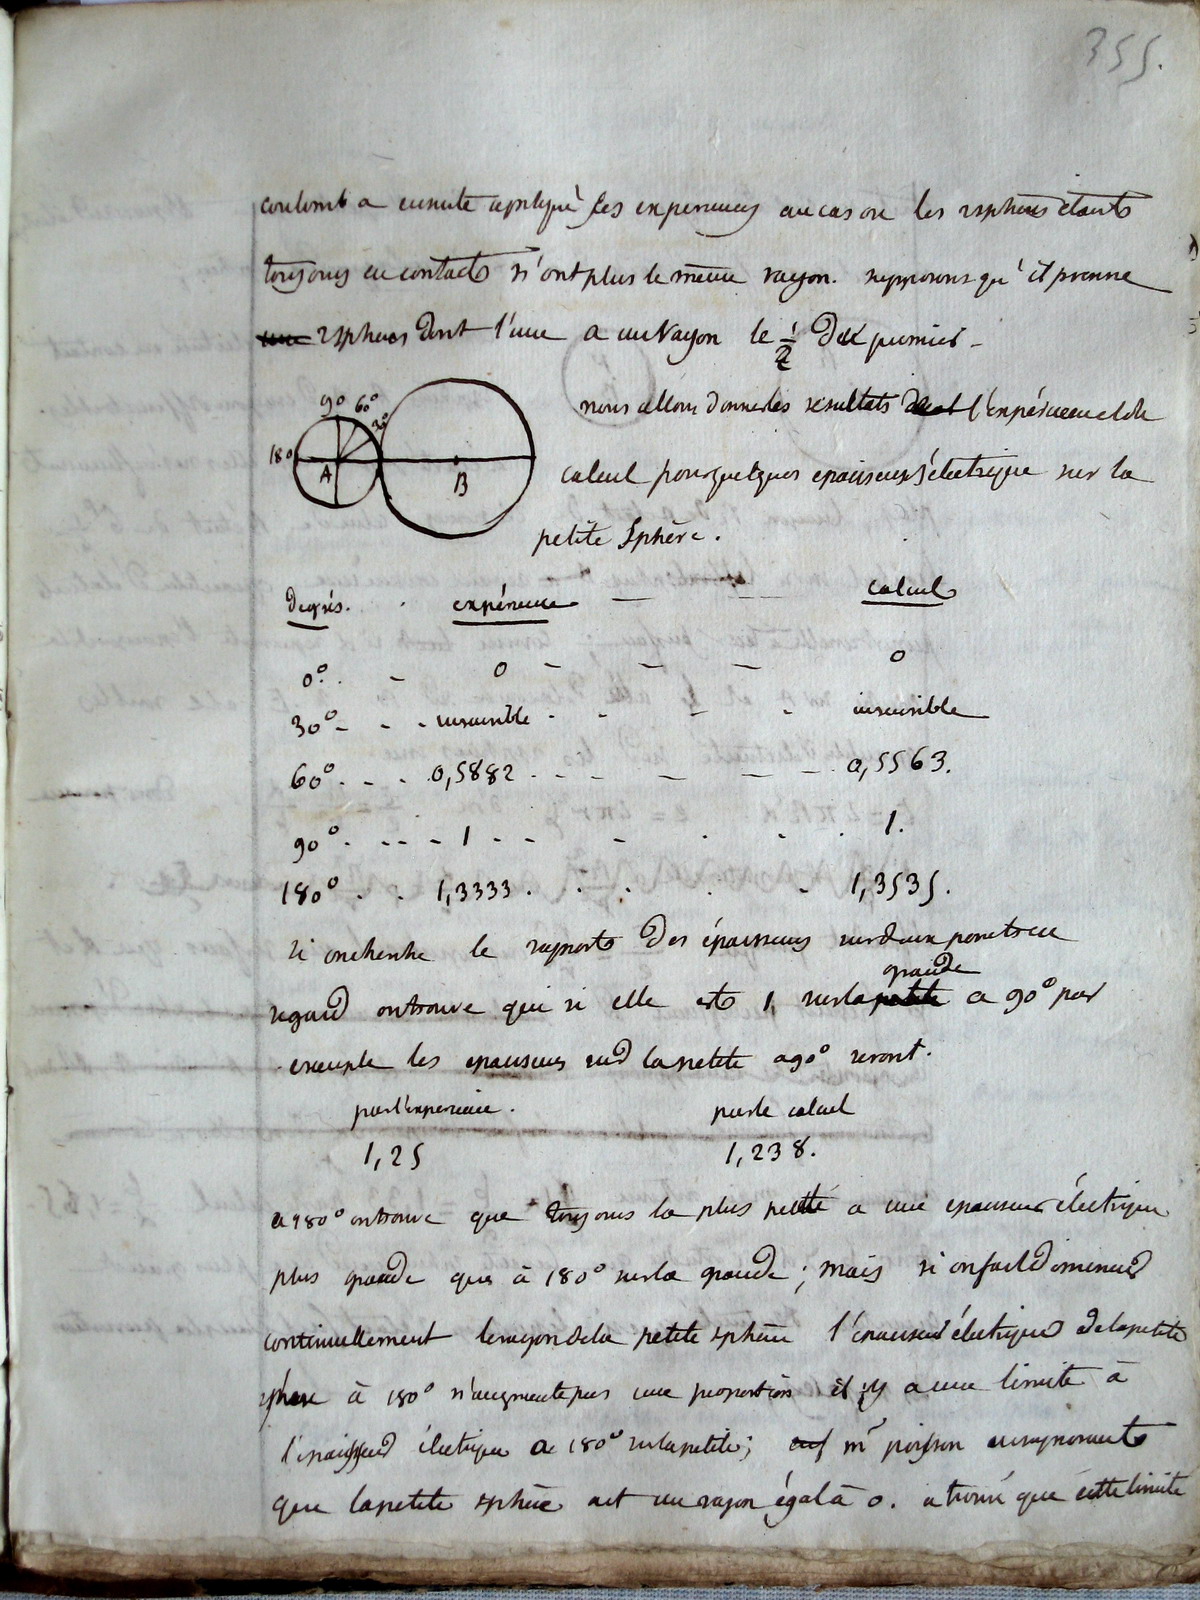 355.
coulomb a ensuite apliqué ses experiences au cas ou les 2 spheres étants
toujours en contacts n'ont plus le même rayon. supposons qu'il prenne
2 spheres dont l'une a un rayon le 1/2 du premier -
90 60° 30°
180 A B
nous allons donner les resultats de l'expérience et de
calcul pour quelques epaisseurs électrique sur la
petite sphère.
degrés. . expérience - - calculs
0°. - 0 - - - 0
30° - . - insensible - - - - insensible
60°. - . 0,5882 . . - - - - 0,5563.
90°. -- - 1 - - - . . . 1.
180° . . 1,3333 . . . . - 1,3535.
si oncherche le rapports des épaisseurs
grande
regard ontrouve que si elle est 1, sur la petite a 90° par
exemple les epaisseurs sur la petite a 90° seront.
par l'experience. par le calcul
1,25 1,238.
a 180° ontrouve que toujours la plus petite a une epaisseur électrique
plus grande que à 180° sur la grande; mais si on fait diminuer
continuellement le rayon de la petite sphère l'épaisseur électrique de la petite
sphere à 180° n'augmente pas une proportion il y a une limite à
l'épaisseur électrique a 180° sur la petite; mr poisson en suposant
que la petite sphère ait un rayon égal à 0. a trouvé que cette limite